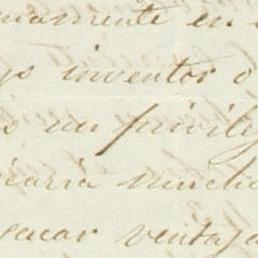 mente en
inventor
un privile
mucho
sacar ventaja